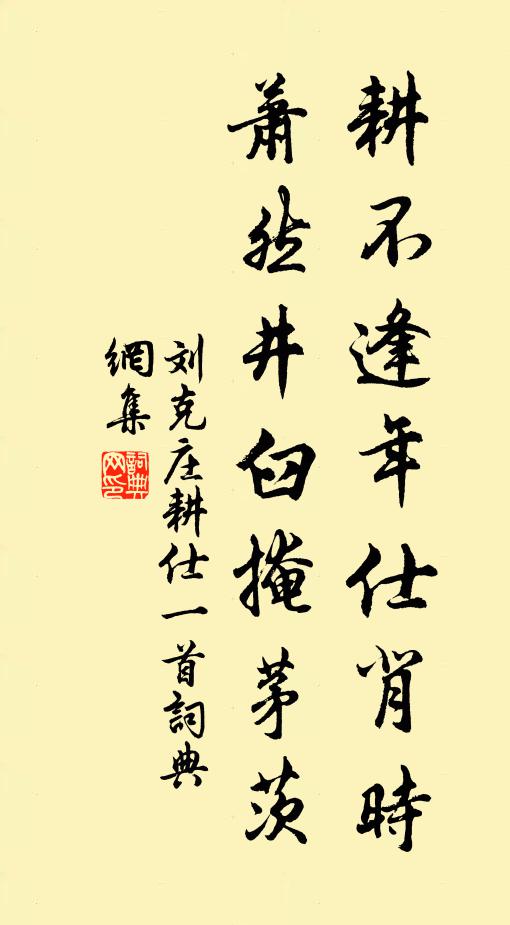 耕不逢年仕背時
蕭然井臼掩茅茨
刘克庄耕仕一首詞典
網集
詞典網印